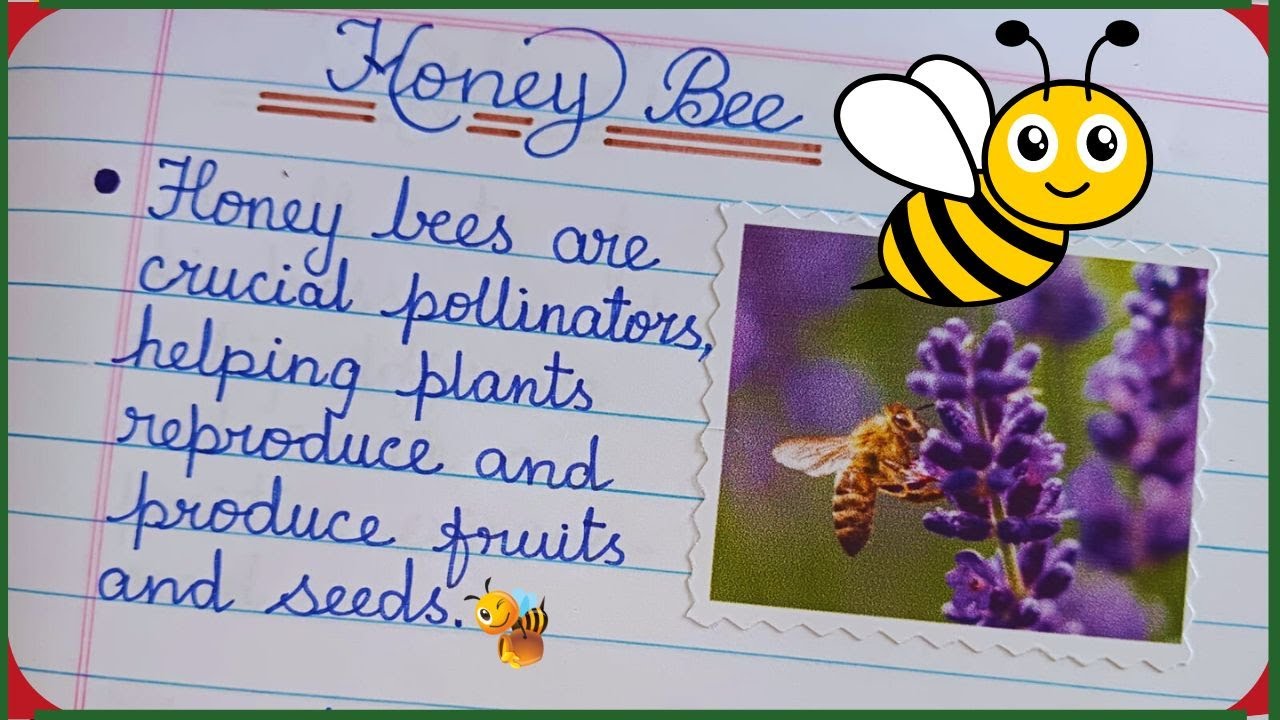 Honey Bee
• Honey bees are
crucial pollinators,
helping plants
reproduce and
produce fruits
and seeds.